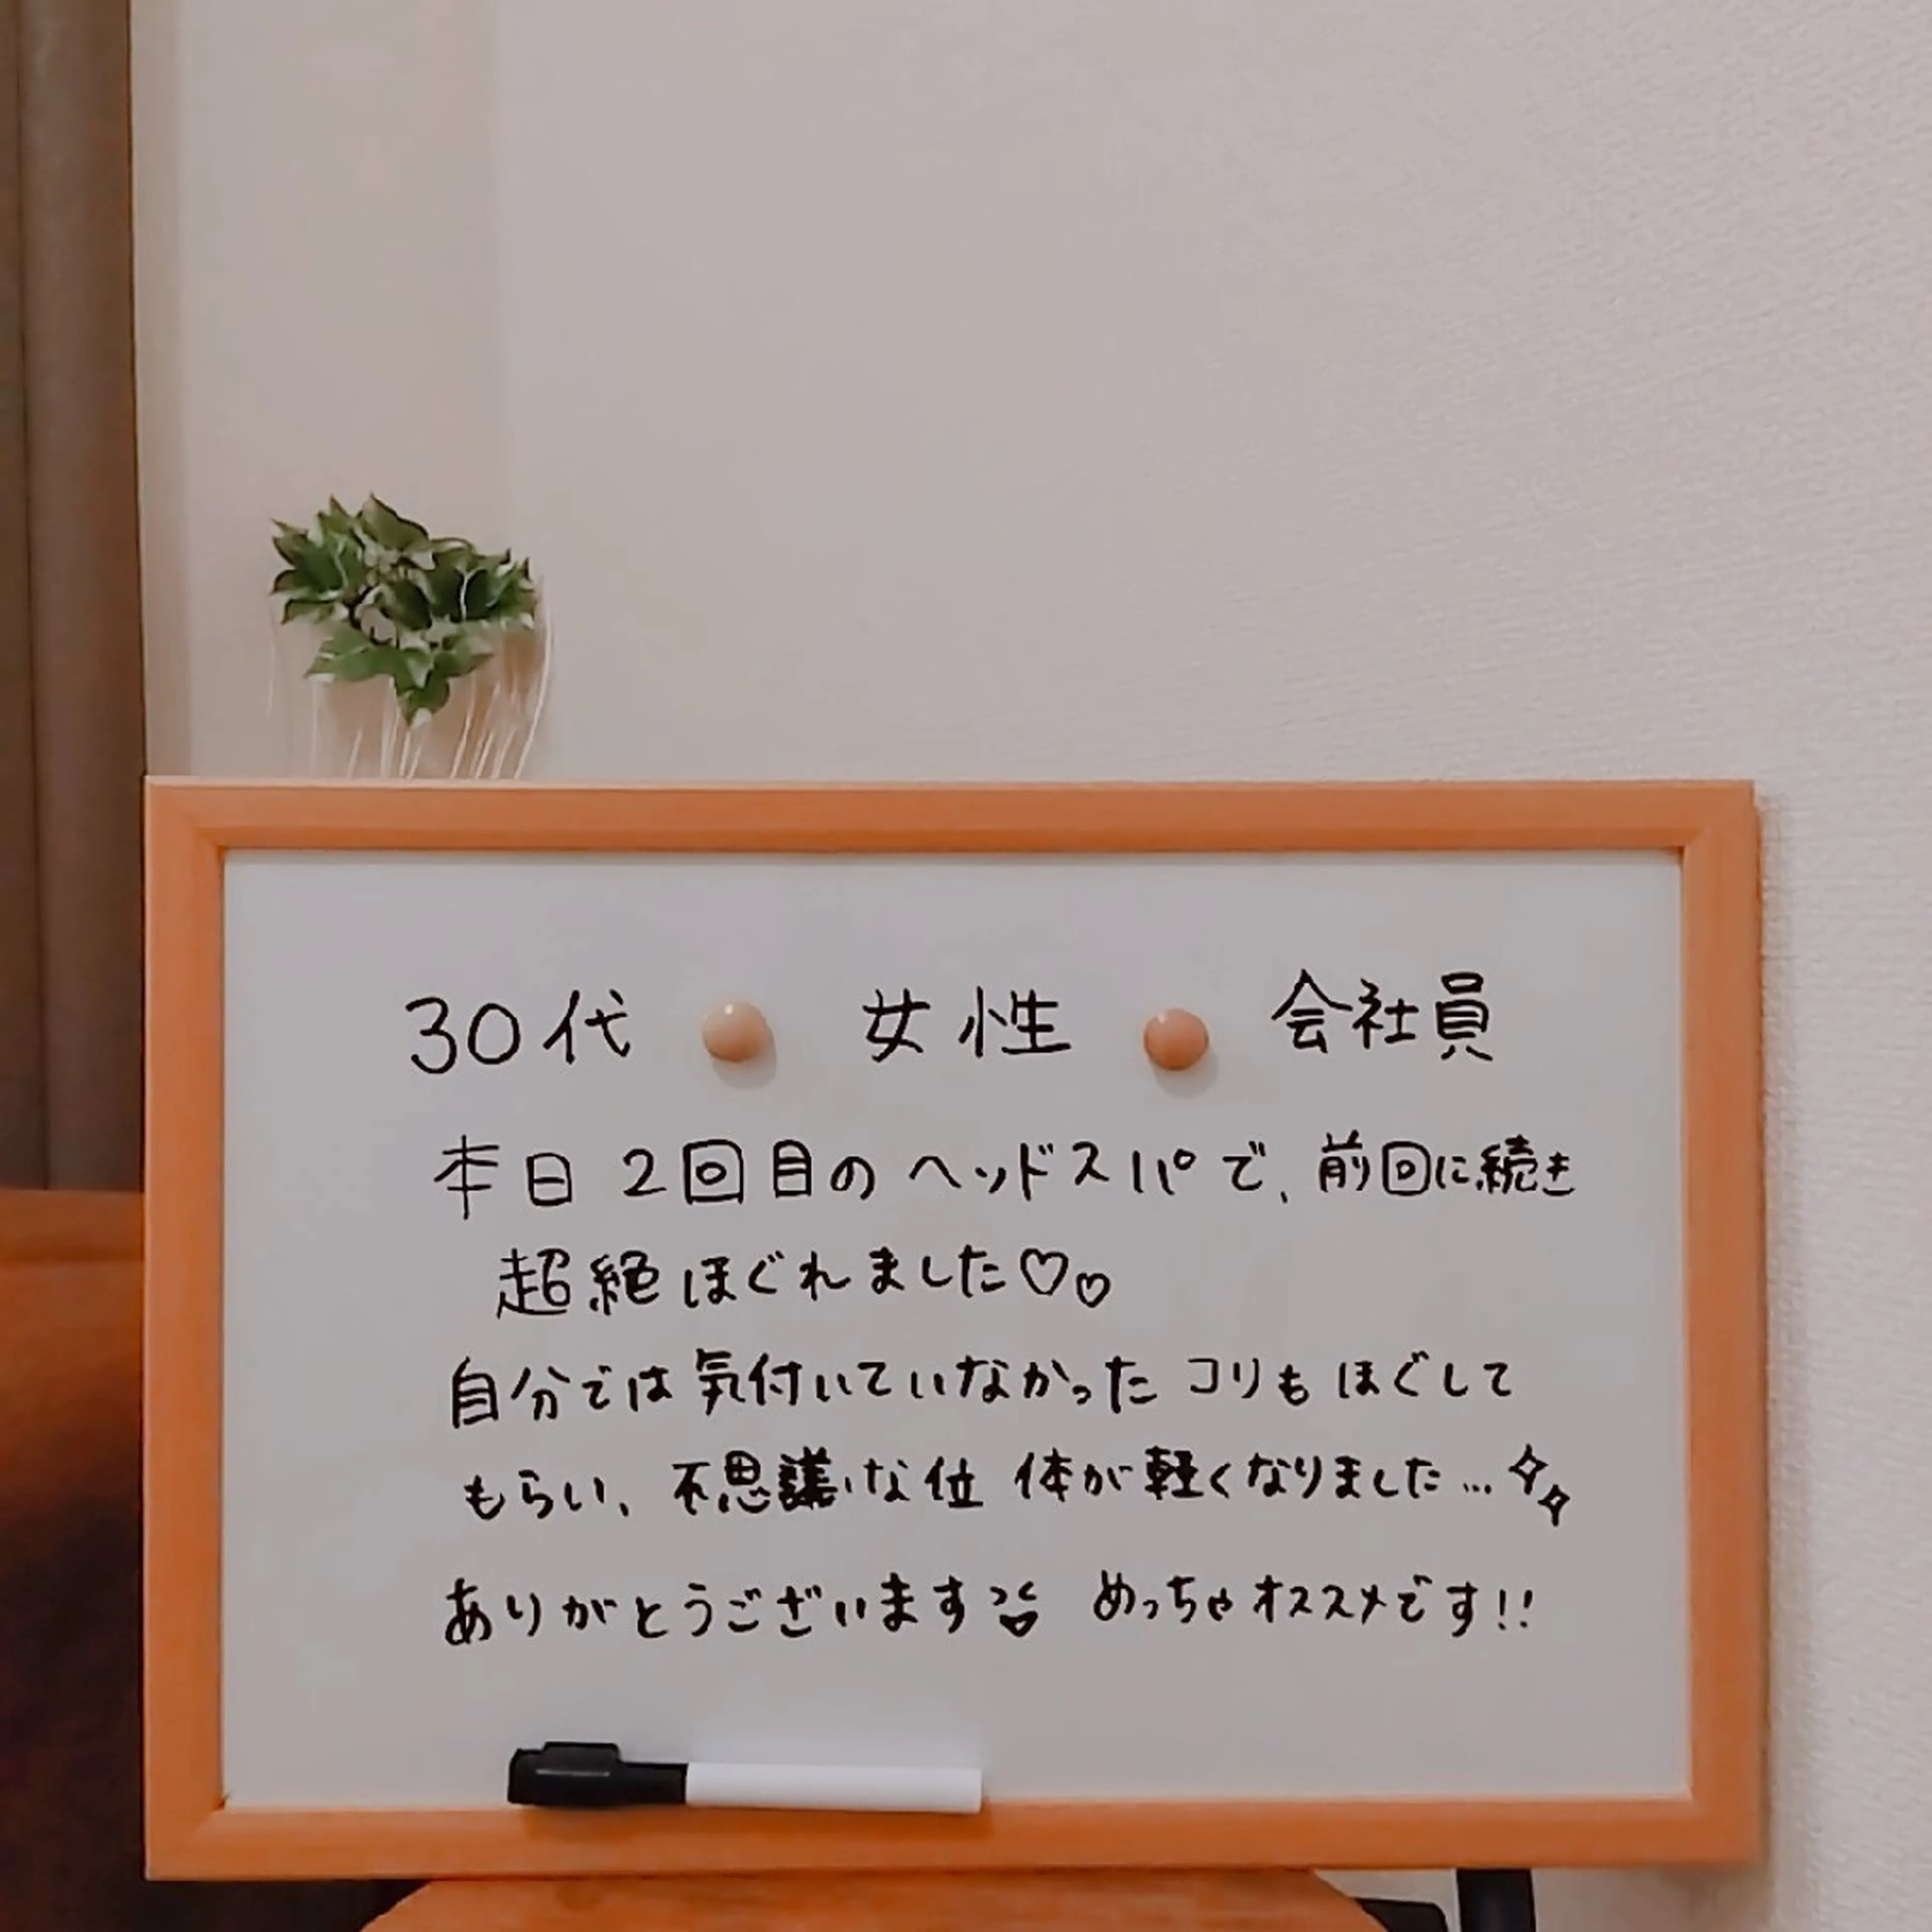 30代 女性 会社員
本日 2回目の ヘッドスパで、前回に続き
超絶ほぐれました♡♡
自分では気付いていなかった コリも ほぐして
もらい、不思議な位 体が軽くなりました…✧✧
ありがとうございます めっちゃオススメです!!